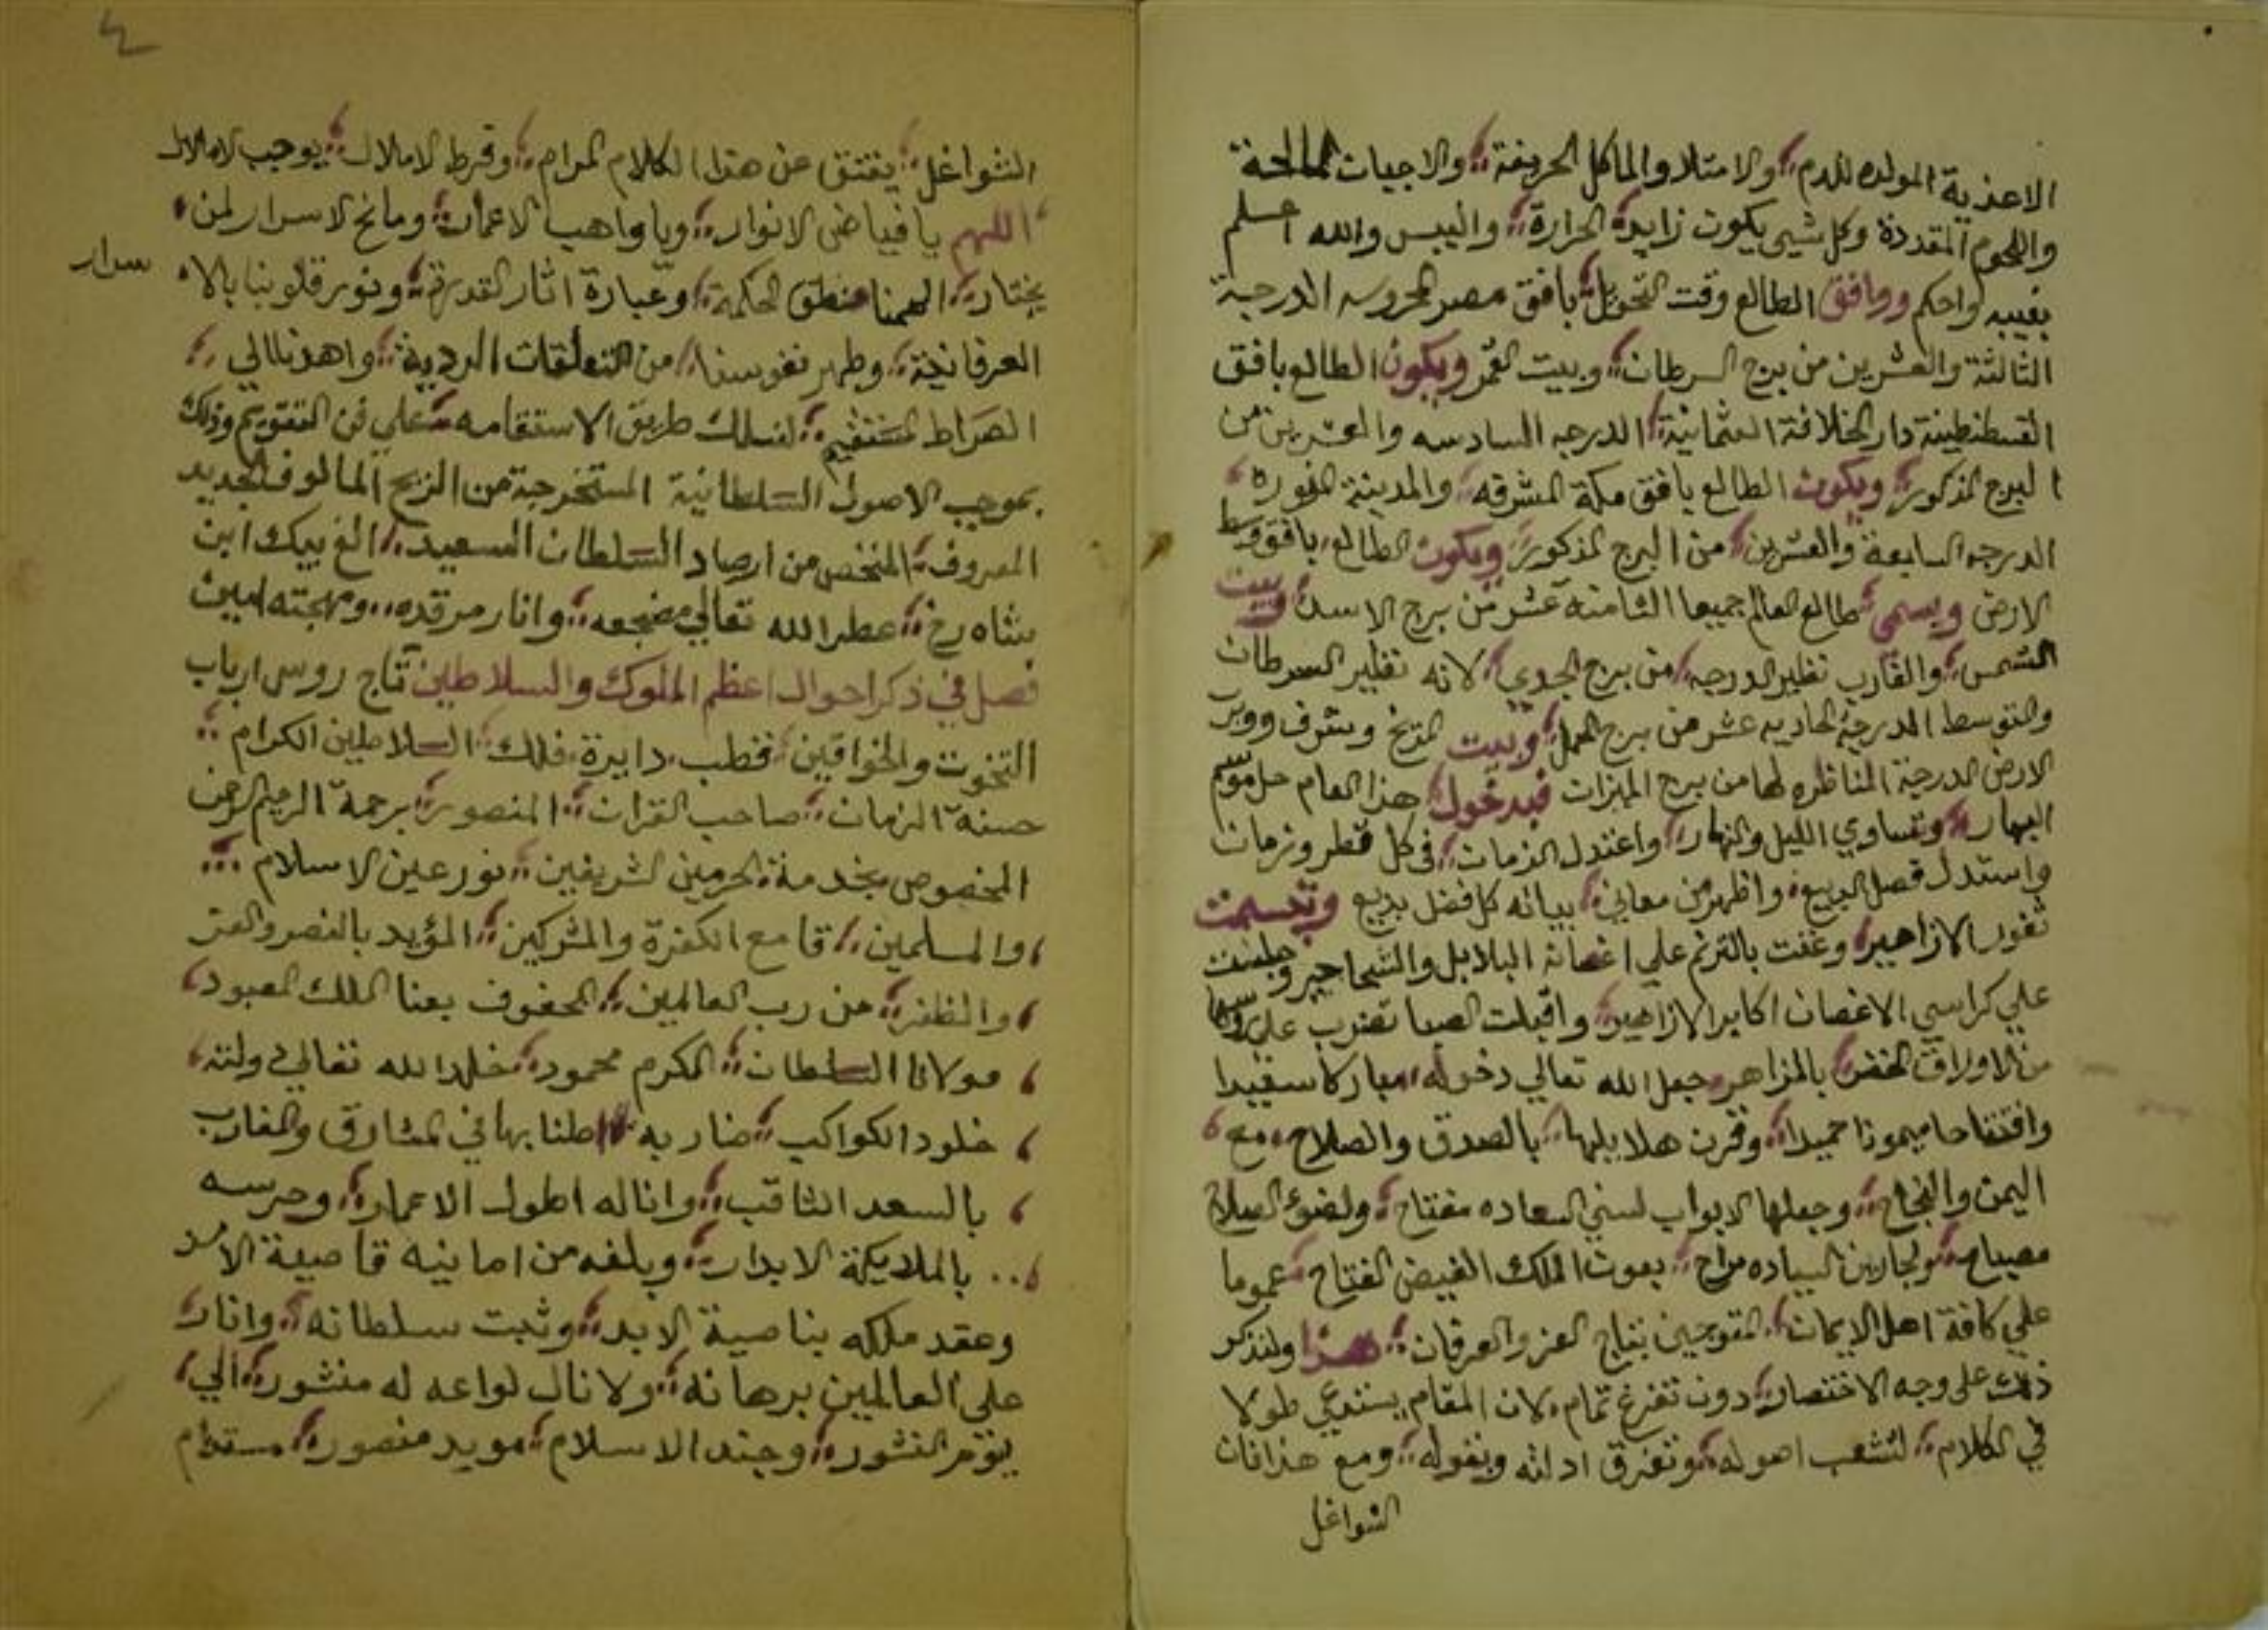 الاغذية المولده للدم والامتلا والماكل الحريفة والاجبات المالحة
واللحوم المقددة وكل شيى يكون زايد الحرارة واليبس والله اعلم
بغيبه واحكم ووافق الطالع وقت التحويل بافق مصر المحروسه الدرجة
الثالثة والعشرين من برج السرطان وبيت القمر ويكون الطالع بافق
القسطنطينة دار الخلافة العثمانية الدرجه السادسه والعشرين من
البرج المذكور ويكون الطالع بافق مكة المشرفه والمدينة المنوره
الدرجه السابعة والعشرين من البرج المذكور ويكون الطالع بافق وسط
الارض ويسمى طالع العالم جميعا الثامنه عشر من برج الاسد وبيت
الشمس والغارب نظير الدرجه من برج الجدي لانه نظير السرطان
والتوسط الدرجة الحاديه عشر من برج الحمل وبيت المريخ وشرف ووتد
الارض الدرجة المناظره لها من برج الميزان فبدخول هذا العام حل موسم
البهار وتساوي الليل والنهار واعتدل الزمان في كل قطر وزمان
واستدل فصل الربيع واظهر من معاني بيانه كل فضل بديع وتبسمت
ثغور الازاهير وغنت بالترنم على اغصانه البلابل والشحاحير وجلست
علي كراسي الاغصان اكابر الازاهير واقبلت الصبا تضرب على روسها
من الاوراق الخضر بالمزاهر جعل الله تعالي دخوله مباركا سعيدا
وافتتاحا ميمونا حميدا وقرن هلا يليها بالصدق والصلاح مع
اليمن والنجاح وجعلها لابواب لسني السعاده مفتاح ولضوء الصلاح
مصباح السياده بعون الملك الفيض الفتاح عموما
علي كافة اهل الايمان المتوجين بتاج العز والعرفان هذا ولنذكر
ذلك على وجه الاختصار دون تفرغ تمام لان المقام يستدعي طولا
في الكلام لتشعب اصوله وتفرق ادلته ونقوله ومع هذا فان
الشواغل
٤
الشواغل يفتق عن هذا الكلام المرام وفرط الاملال يوجب الاملال
اللهم يا فياض الانوار ويا واهب الاعمار ومانح الاسرار لمن
يختار الهمنا منطق الحكمة وعبارة اثار القدرة ونور قلوبنا بالا
سرار
العرفانية وطهر نفوسنا من التعلقات الردية واهدنا الي
الصراط المستقيم لنسلك طريق الاستقامه علي فن التقويم وذلك
بموجب الاصول السلطانية المستخرجة من الزيج المالوف الجديد
المعروف الملخص من ارصاد السلطان السعيد الغ بيك ابن
شاه رخ عطر الله تعالي مضجعه وانار مرقده ومهجته امين
فصل في ذكر احوال اعظم الملوك والسلاطين تاج روس ارباب
التخوت والخواقين قطب دايرة فلك السلاطين الكرام
حسنة الزمان صاحب القران المنصور برحمة الرحيم الرحمن
المخصوص بخدمة الحرمين الشريفين نور عين الاسلام
والمسلمين قامع الكفرة والمشركين المؤيد بالنصر والعز
والظفر من رب العالمين المحفوف بعنا الملك المعبود
مولانا السلطان المكرم محمود خلد الله تعالي دولته
خلود الكواكب ضاربه اطنابها في المشارق والمغارب
بالسعد الثاقب واناله اطول الاعمار وحرسه
بالملايكة الابرار وبلغه من امانيه قاصية الامد
وعقد ملكه بناصية الابد وثبت سلطانه وانار
على العالمين برهانه ولا زال لواءه له منشور الي
يوم النشور وجند الاسلام مويد منصور مستدام